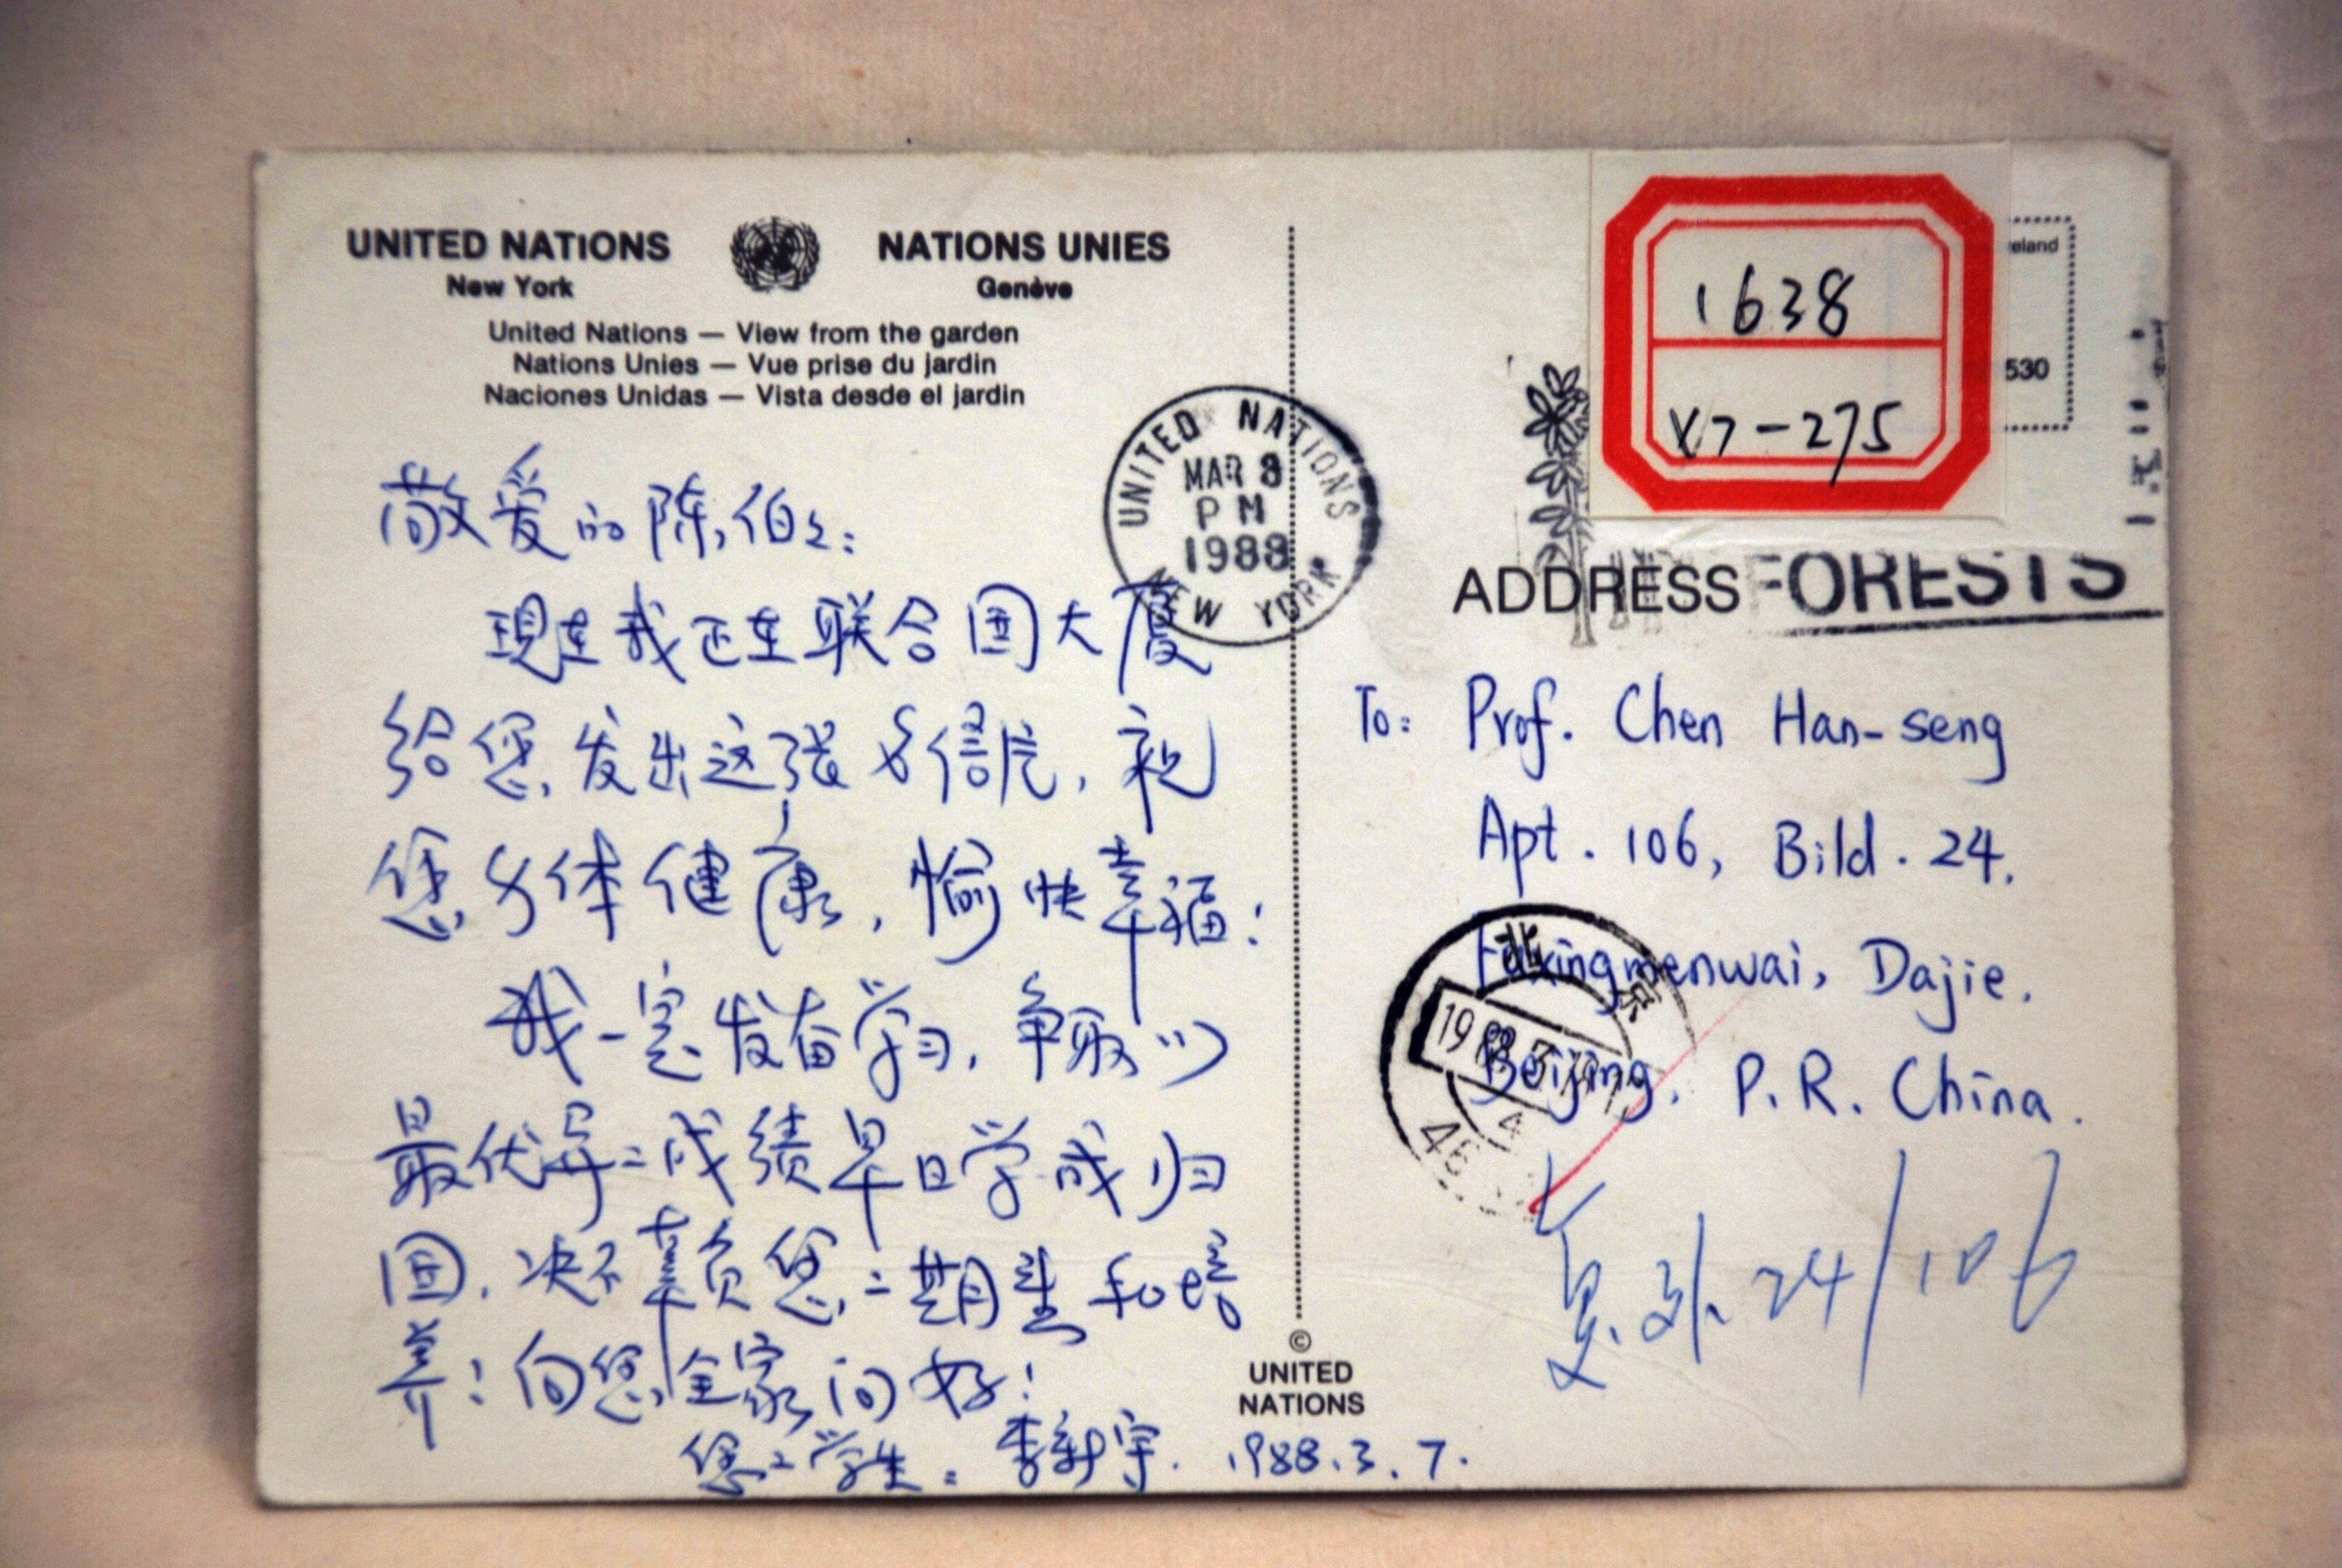 UNITED NATIONS
New York
NATIONS UNIES
Genève
United Nations — View from the garden
Nations Unies — Vue prise du jardin
Naciones Unidas — Vista desde el jardin
敬爱的陈伯伯:
现在我正在联合国大厦
给您发出这张名信片,祝
您身体健康,愉快幸福!
我一定发奋学习,争取以
最优异的成绩早日学成归
国,决不辜负您的期望和培
养!向您全家问好!
您的学生:李新宇. 1988.3.7.
UNITED NATIONS
MAR 8
PM
1988
NEW YORK
©
UNITED
NATIONS
1638
X7-275
eland
530
ADDRESS
FORESTS
To: Prof. Chen Han-seng
Apt. 106, Bild. 24.
Fuxingmenwai, Dajie.
Beijing. P.R. China.
北京
1988.3
复外24/106